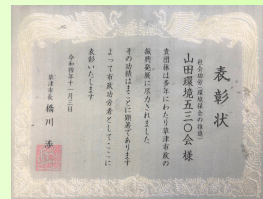 表彰状
社会功労(環境保全の推進)
山田環境五三〇会 様
貴団体は多年にわたり草津市政の
振興発展に尽力されました
その功績はまことに顕著であります
よって市政功労者としてここに
表彰いたします
令和四年十一月三日
草津市長 橋川 渉